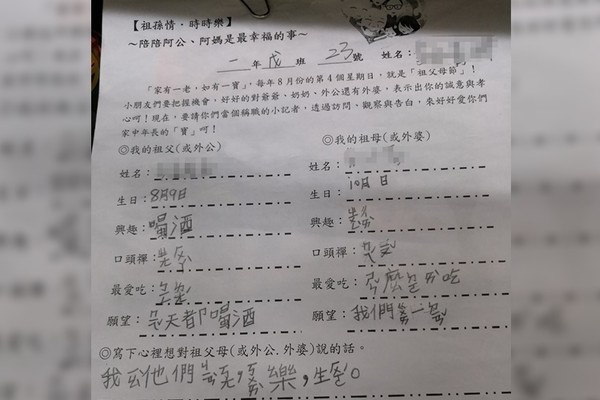 【祖孫情‧時時樂】
～陪陪阿公、阿媽是最幸福的事～
一年戊班23號 姓名：
「家有一老，如有一寶」，每年8月份的第4個星期日，就是「祖父母節」！
小朋友們要把握機會，好好的對爺爺、奶奶、外公還有外婆，表示出你的誠意與孝
心呵！現在，要請你們當個稱職的小記者，透過訪問、觀察與告白，來好好愛你們
家中年長的「寶」呵！
◎我的祖父(或外公) ◎我的祖母(或外婆)
姓名： 姓名：
生日：8月9日 生日：10月 日
興趣：喝酒 興趣：
口頭禪： 口頭禪：
最愛吃： 最愛吃：麼吃
願望：天都喝酒 願望：我們一
◎寫下心裡想對祖父母(或外公.外婆)說的話。
我他們，樂，生。